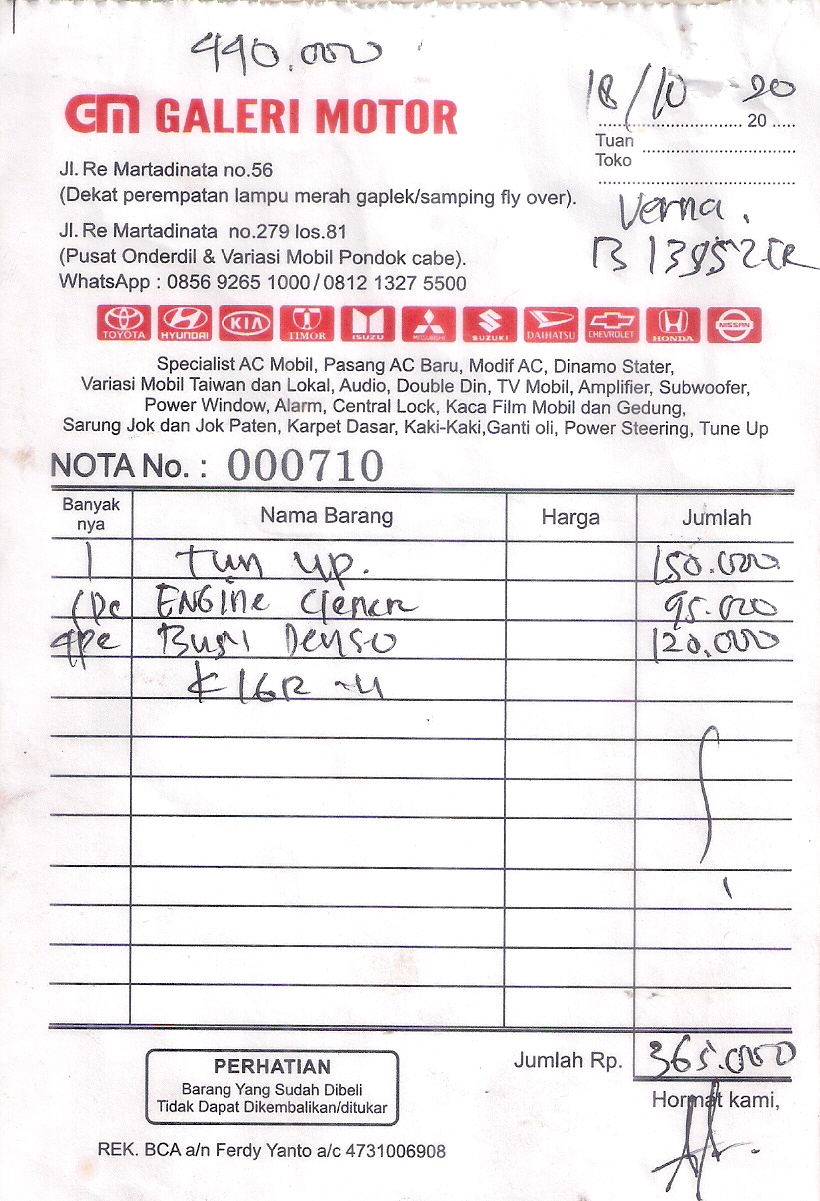 440.000
18/10 20
GM GALERI MOTOR
20
Tuan
Toko
Jl. Re Martadinata no.56
(Dekat perempatan lampu merah gaplek/samping fly over).
Verna.
Jl. Re Martadinata no.279 los.81
(Pusat Onderdil & Variasi Mobil Pondok cabe).
WhatsApp : 0856 9265 1000 / 0812 1327 5500
TOYOTA HYUNDAI KIA TIMOR ISUZU MITSUBISHI SUZUKI DAIHATSU CHEVROLET HONDA NISSAN
Specialist AC Mobil, Pasang AC Baru, Modif AC, Dinamo Stater,
Variasi Mobil Taiwan dan Lokal, Audio, Double Din, TV Mobil, Amplifier, Subwoofer,
Power Window, Alarm, Central Lock, Kaca Film Mobil dan Gedung,
Sarung Jok dan Jok Paten, Karpet Dasar, Kaki-Kaki,Ganti oli, Power Steering, Tune Up
NOTA No. : 000710
Banyak nya Nama Barang Harga Jumlah
1 Tun up. 150.000
1pc ENGINe Clener 95.000
4pc Busi Denso 120.000
K16R-U
Jumlah Rp. 365.000
Hormat kami,
PERHATIAN
Barang Yang Sudah Dibeli
Tidak Dapat Dikembalikan/ditukar
REK. BCA a/n Ferdy Yanto a/c 4731006908